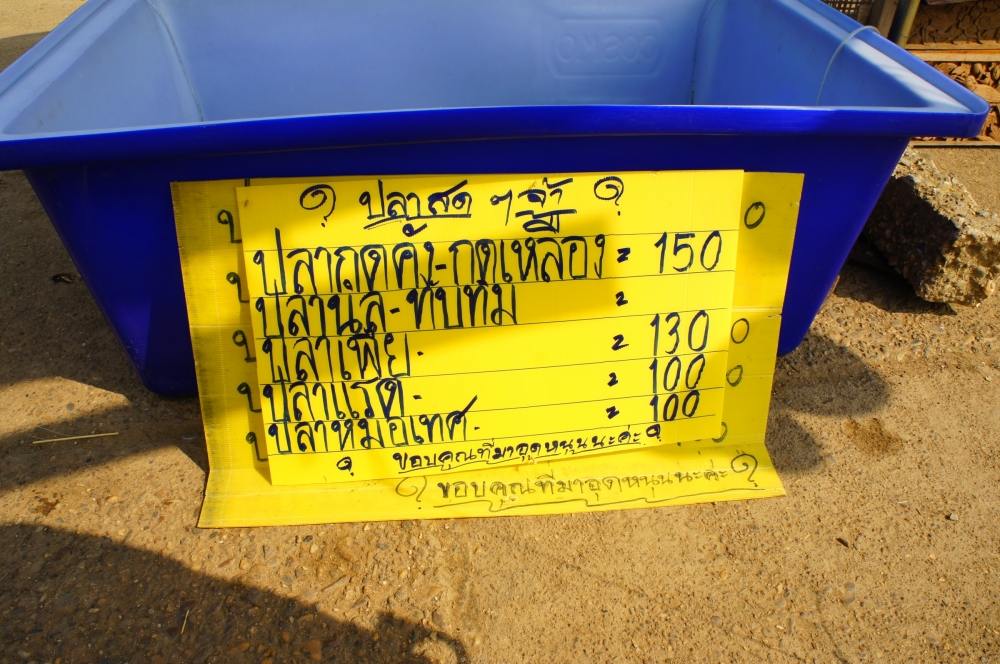 COSMO
ปลาสด ๆ จ้า
ปลากดคัง-กดเหลือง = 150
ปลานิล-ทับทิม =
ปลาเพี้ย. = 130
ปลาแรด. = 100
ปลาหมอเทศ. = 100
ขอบคุณที่มาอุดหนุนนะค่ะ
ขอบคุณที่มาอุดหนุนนะค่ะ